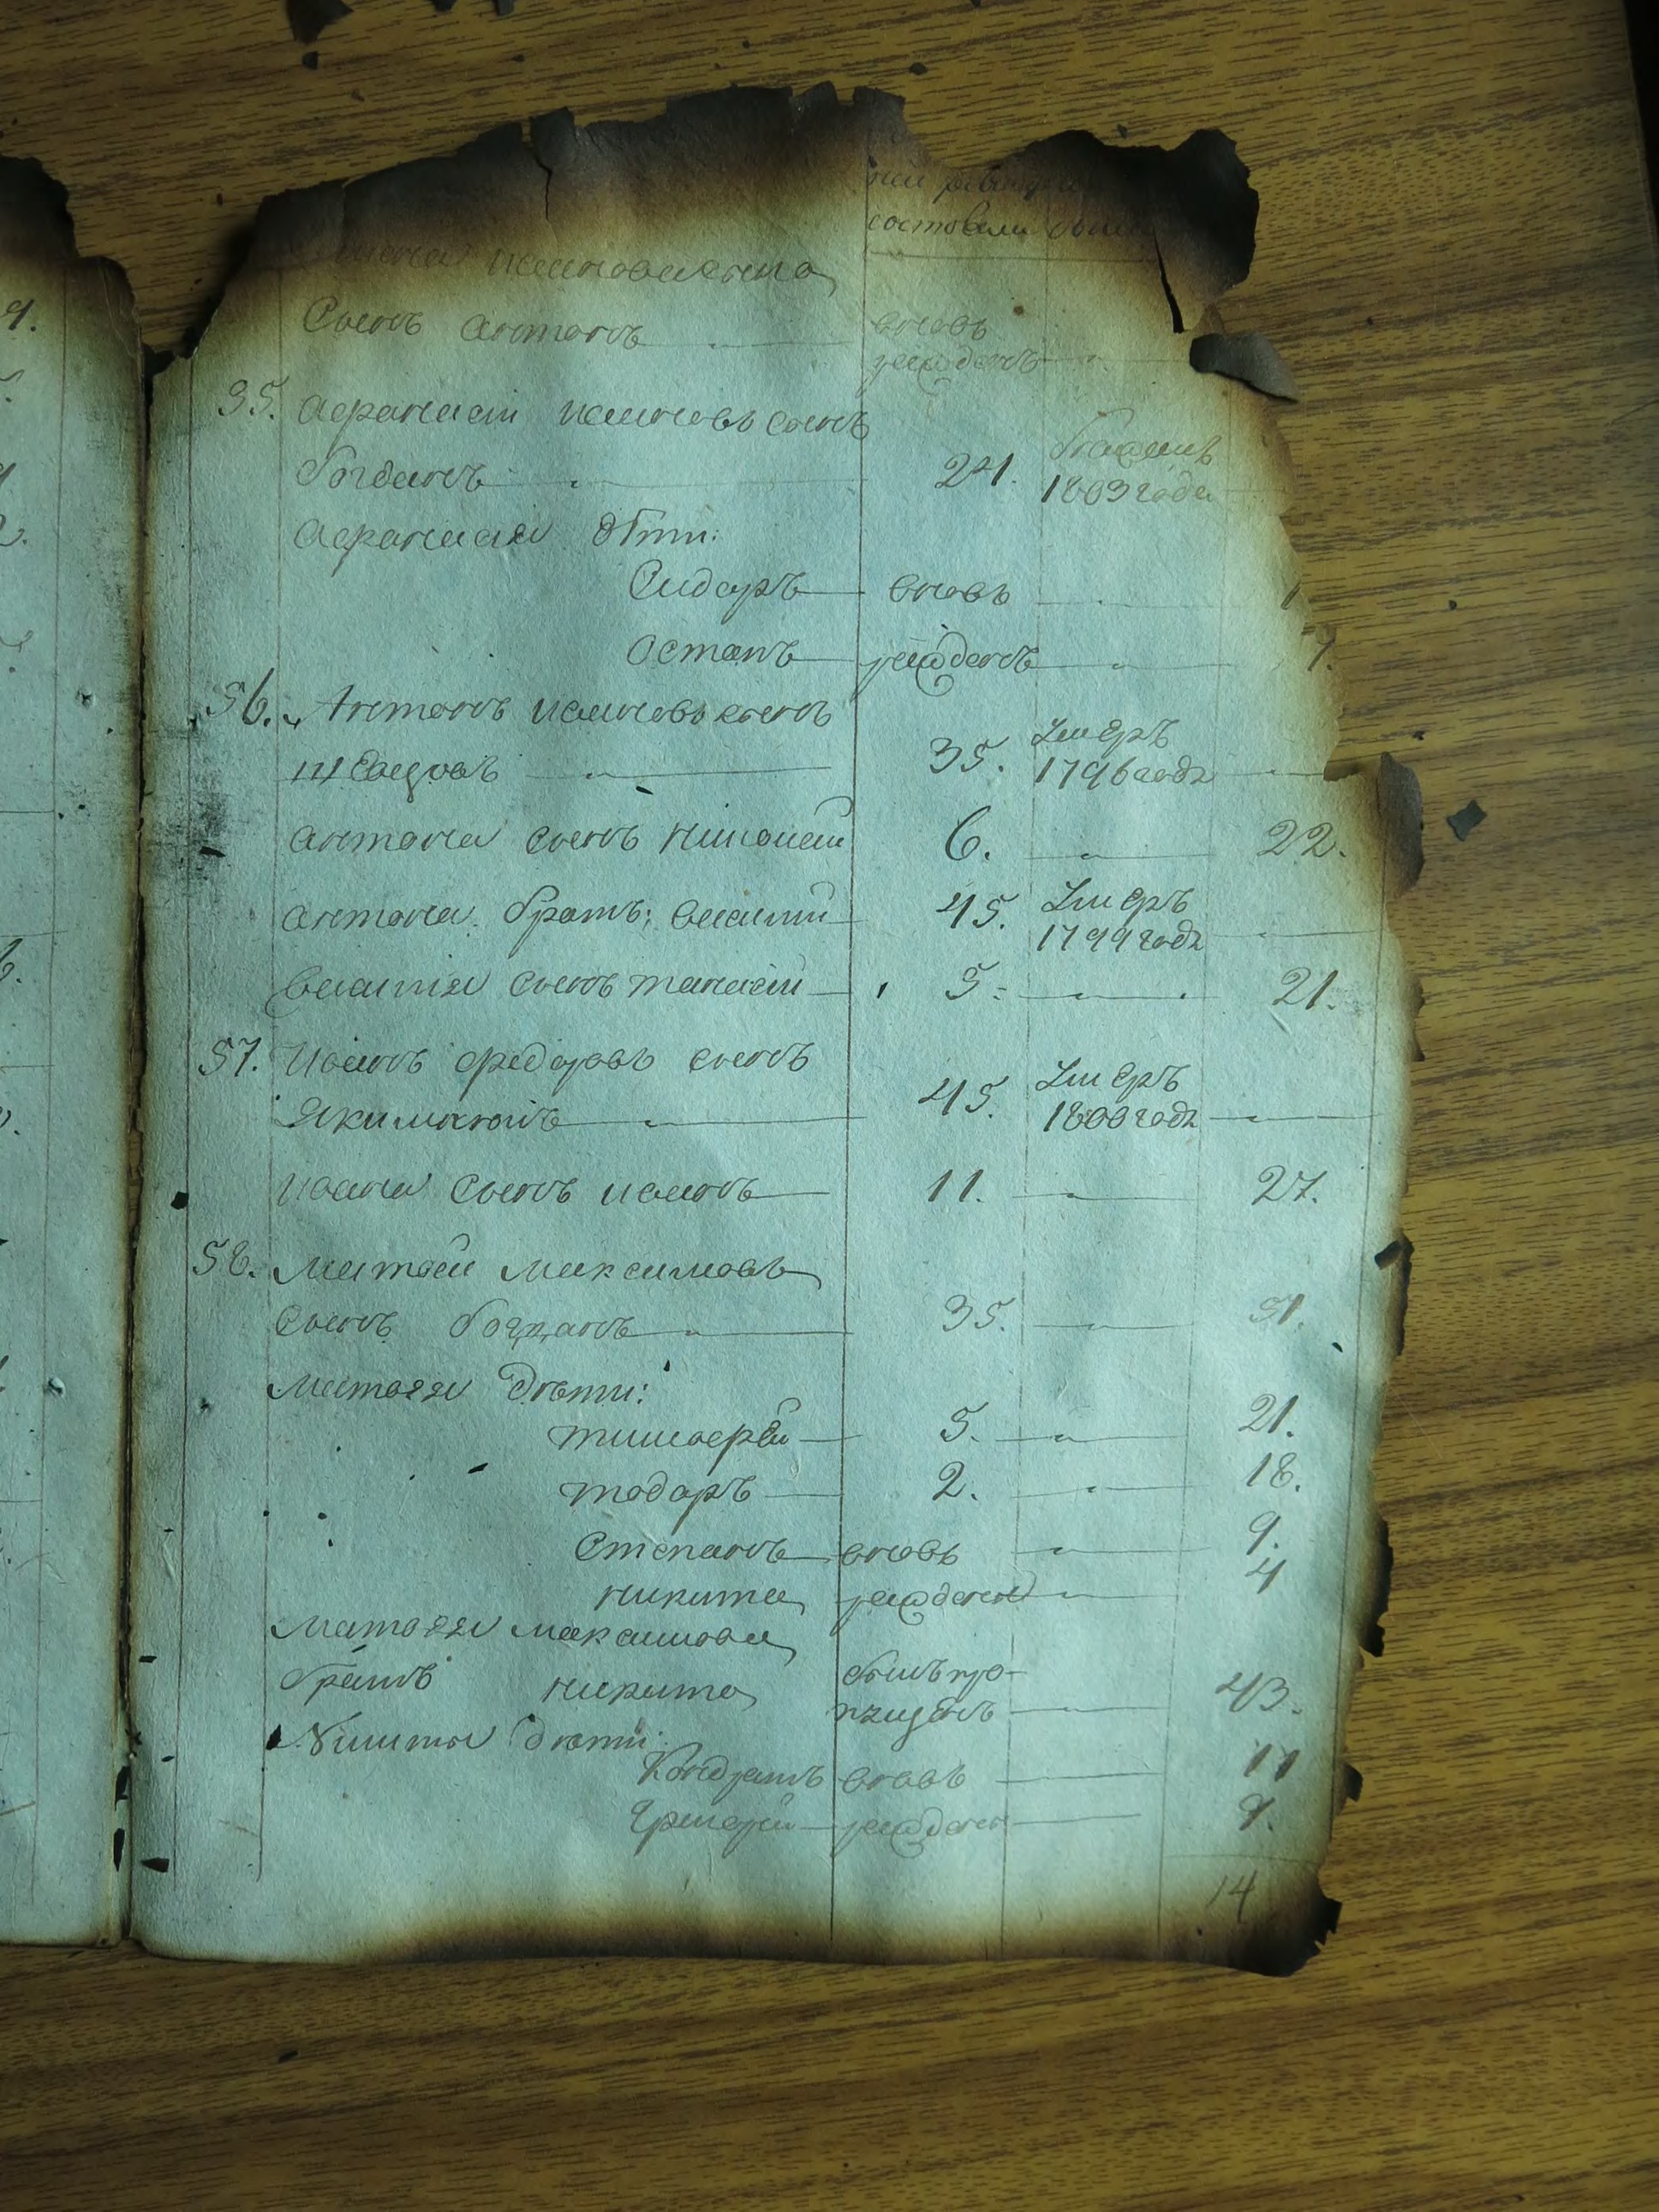 состояли
Сынъ Антонъ вновь
рожденъ
35. Афанасий Ивановъ сынъ
Богданъ 21. 1803 года
Афанасия дѣти:
Сидоръ вновь
Остапъ рожденъ 7.
56. Антонъ Ивановъ сынъ
Швецовъ 35. Умеръ
1796 года
Антона сынъ Николай 6. 22.
Антона братъ: Василий 45. Умеръ
1799 года
Василия сынъ Танасий 5. 21.
57. Иванъ Федоровъ сынъ
45. Умеръ
1800 года
Ивана сынъ Иванъ 11. 27.
58. Матвей Максимовъ
Сынъ Богданъ 35. 51.
Матвея Дѣти:
Тимофей 5. 21.
Тодоръ 2. 18.
Степанъ вновь 9.
Никита рождены 4
Матвея Максимова
братъ Никита былъ про-
пущенъ 43.
Никиты дѣти:
Кондратъ вновь 11
Григорий рождены 9.
14